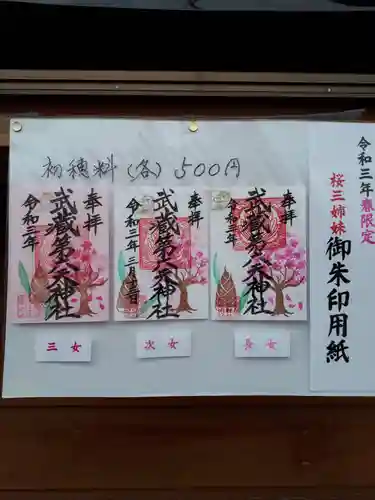 令和三年春限定
桜三姉妹
御朱印用紙
初穂料(各)500円
奉拝
武蔵第六天神社
令和三年
三女
奉拝
武蔵第六天神社
令和三年三月
次女
奉拝
武蔵第六天神社
令和三年
長女